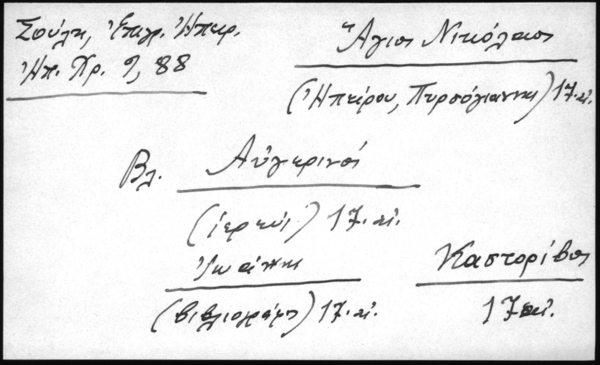 Σούλη, Ἐπιγρ. Ἠπειρ.
Ἠπ. Χρ. 9, 88
Ἅγιος Νικόλαος
(Ἠπείρου, Πυρσόγιαννη) 17. αἰ.
Βλ. Αὐγερινός
(ἱερεύς) 17. αἰ.
Ἰωάννης
(βιβλιογράφος) 17. αἰ.
Καστορίβος
17 αἰ.